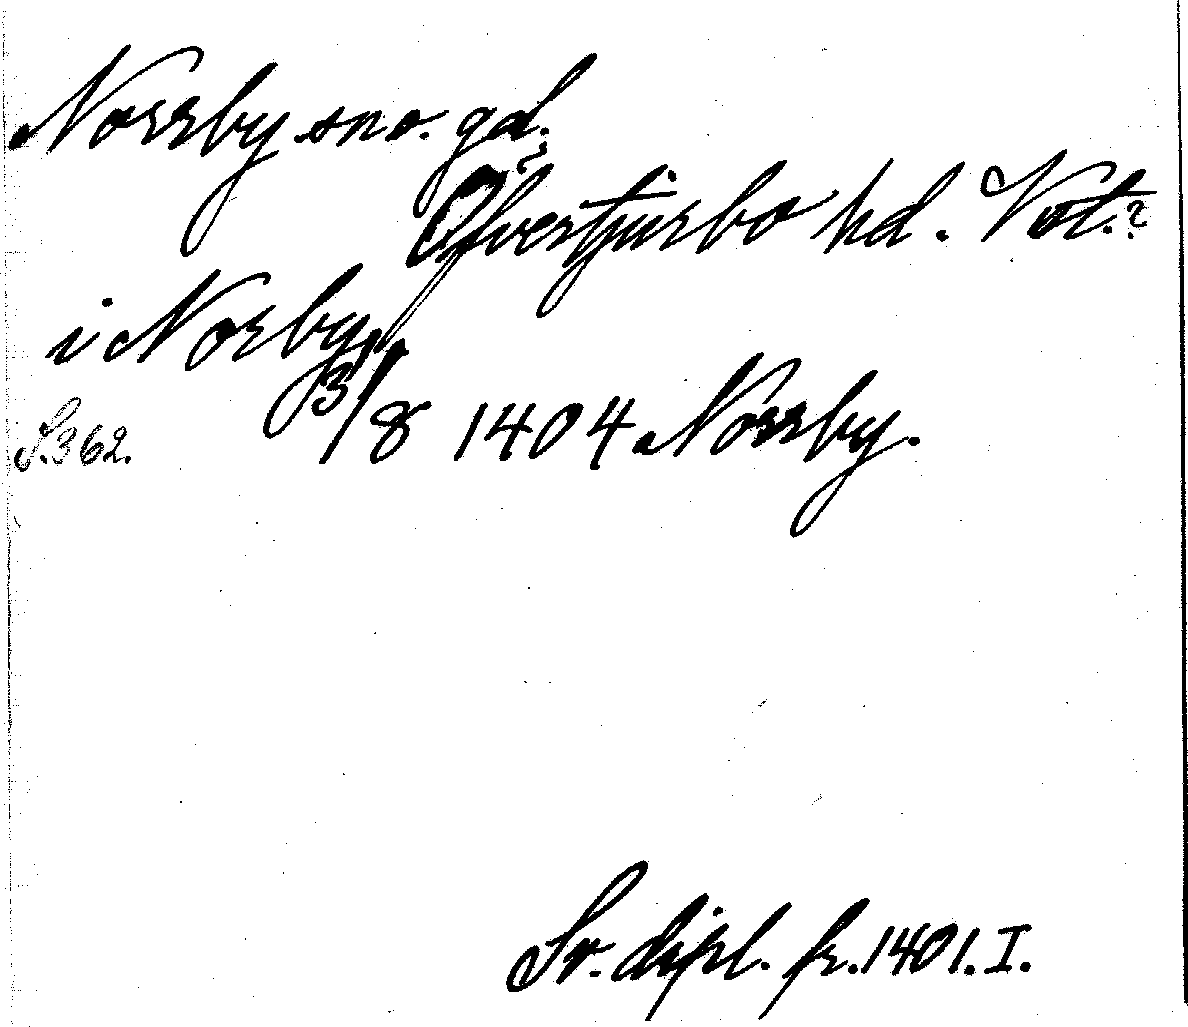 Norrby sno. gd.
?
Övertjurbo hd. Vstm.?
i Norby
3/8 1404 Norrby.
S.362.
Sv. dipl. fr. 1401. I.